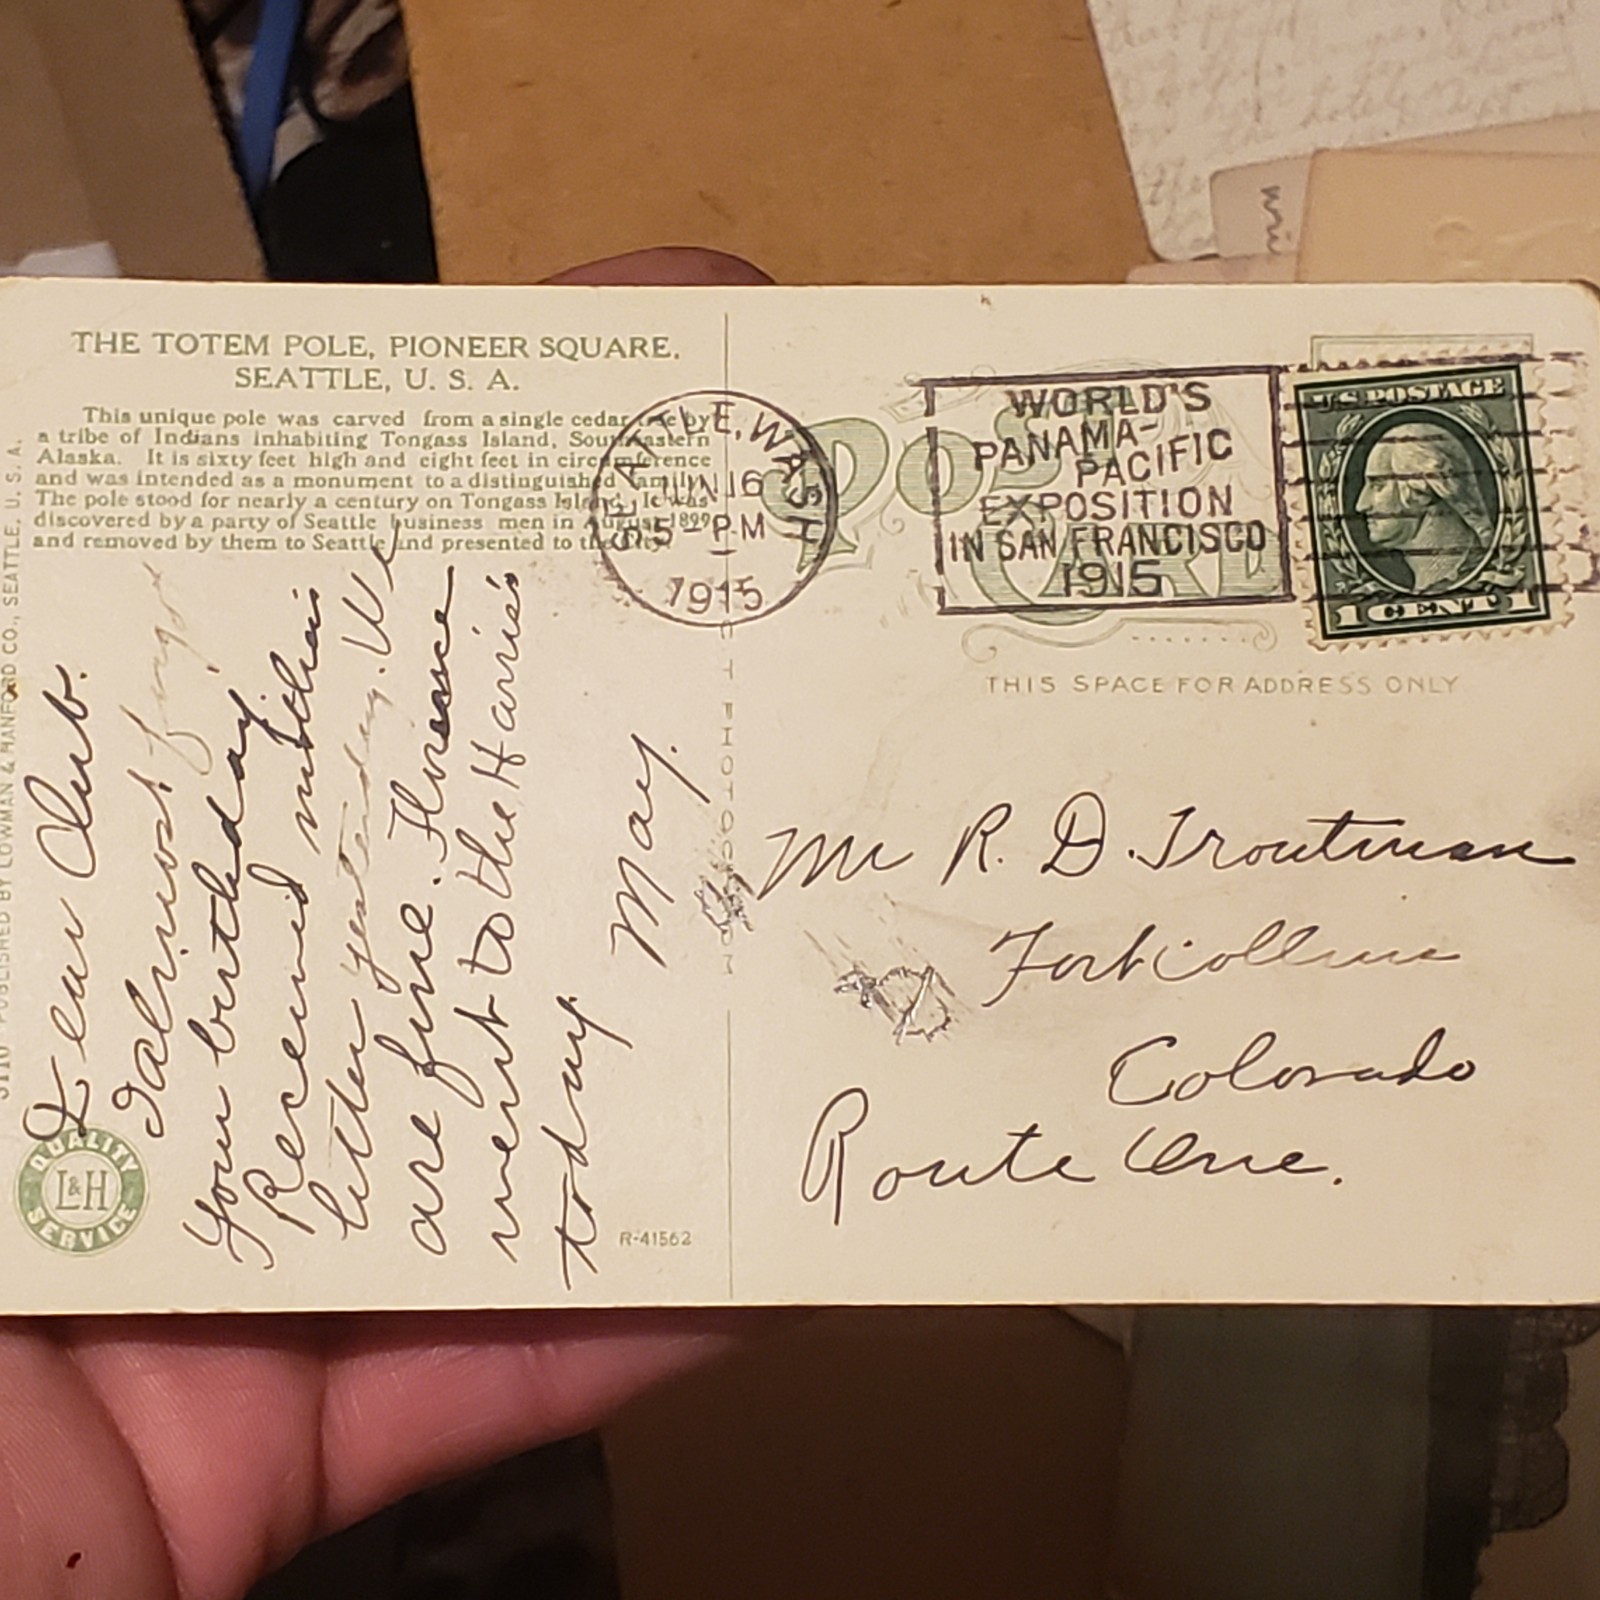 THE TOTEM POLE, PIONEER SQUARE,
SEATTLE, U. S. A.
This unique pole was carved from a single cedar tree by
a tribe of Indians inhabiting Tongass Island, Southeastern
Alaska. It is sixty feet high and eight feet in circumference
and was intended as a monument to a distinguished family.
The pole stood for nearly a century on Tongass Island. It was
discovered by a party of Seattle business men in August, 1899
and removed by them to Seattle and presented to the City.
PUBLISHED BY LOWMAN & HANFORD CO., SEATTLE, U. S. A.
Dear Club.
I almost forgot
your birthday.
Received mother's
letter yesterday. We
are fine. Florence
went to the Harris's
today.
May.
QUALITY
L&H
SERVICE
R-41562
SEATTLE, WASH
JUN 16
5 - P.M
1915
WORLD'S
PANAMA-
PACIFIC
EXPOSITION
IN SAN FRANCISCO
1915
POST
CARD
U.S. POSTAGE
1 CENT 1
THIS SPACE FOR ADDRESS ONLY
Mr R. D. Troutman
Fort Collins
Colorado
Route One.